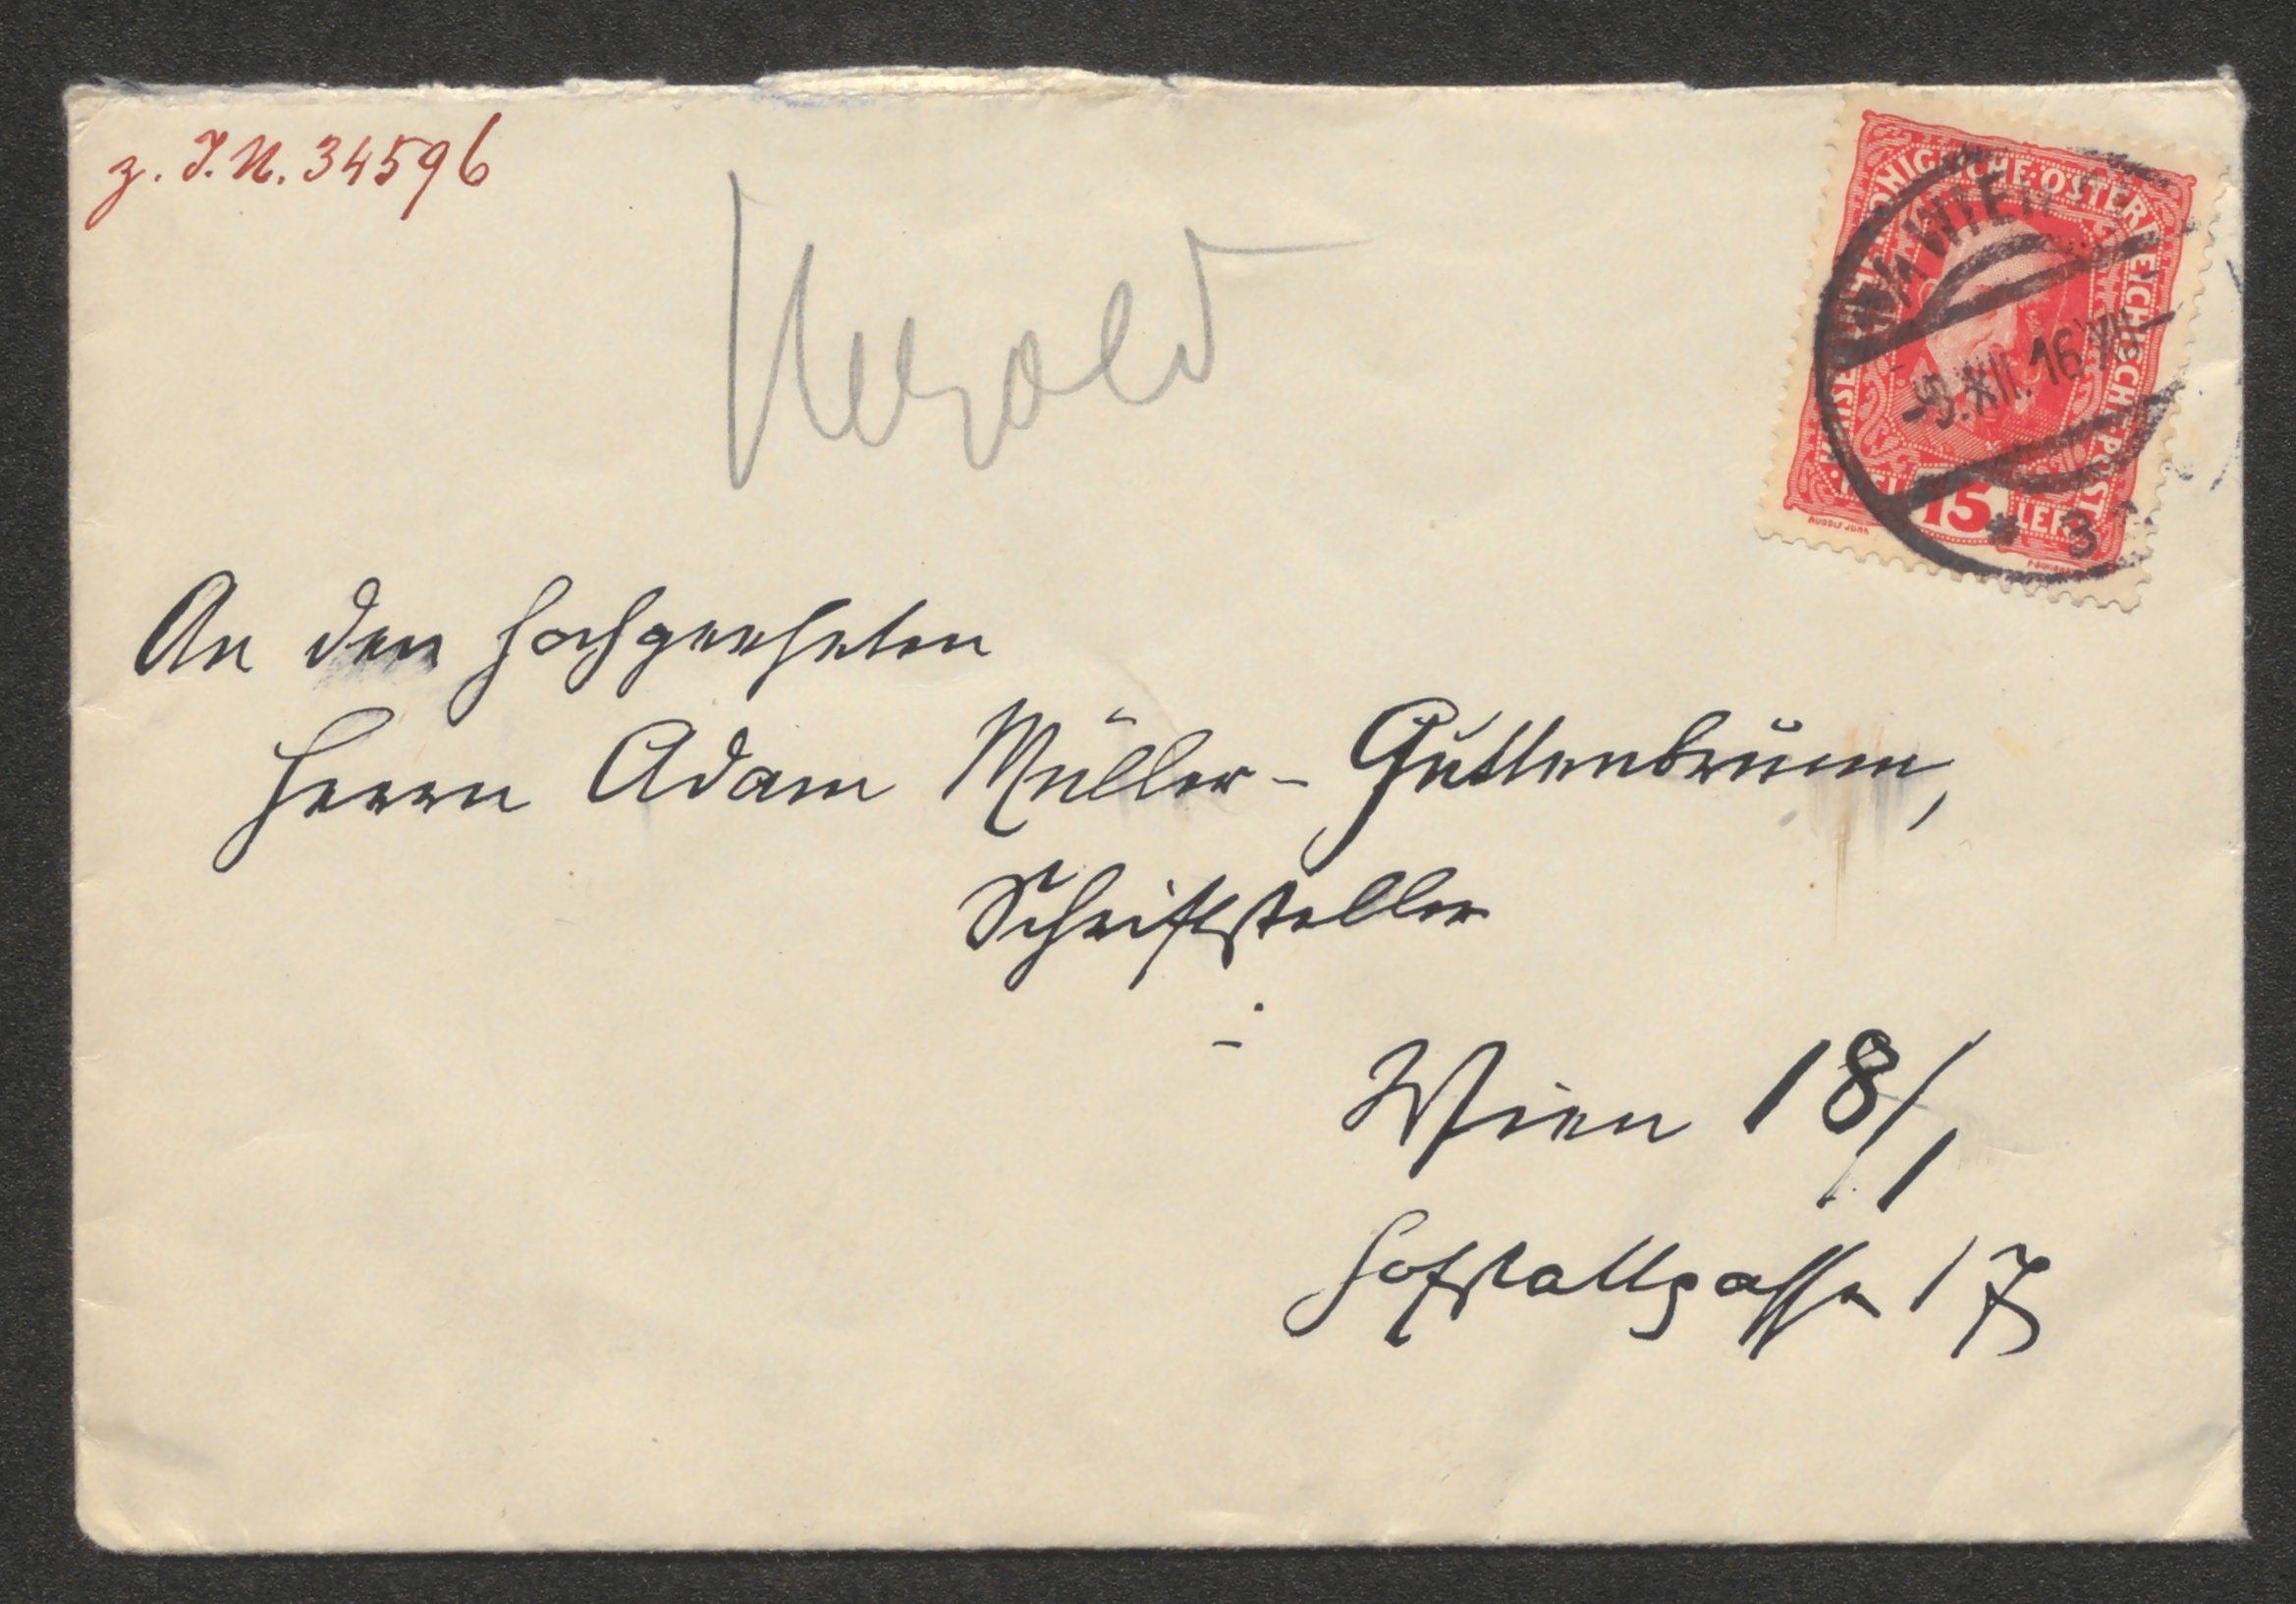 z. I.N. 34596
Herold
KAISERLICHE KÖNIGLICHE ÖSTERREICHISCHE POST
WIEN
9.XII.16
* 3
15
HELLER
RUDOLF JUNK
An den hochgeehrten
Herrn Adam Müller-Guttenbrunn,
Schriftsteller
Wien 18/1
Hofstallgasse 17